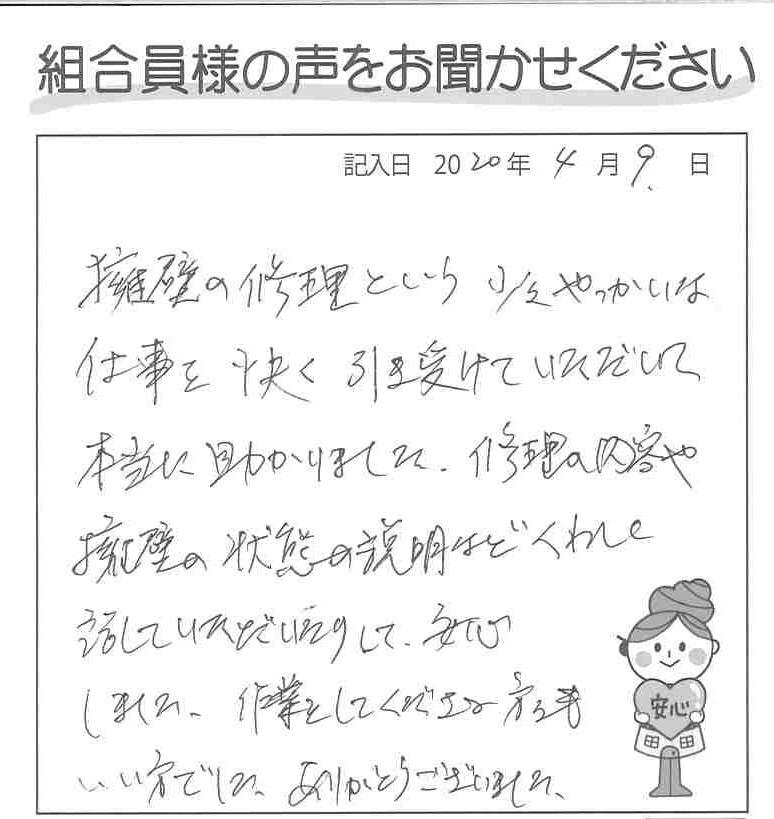 組合員様の声をお聞かせください
記入日 2020年 4月 9日
擁壁の修理という 少々やっかいな
仕事を 快く 引き受けていただいて
本当に助かりました。修理の内容や
擁壁の状態の説明などくわしく
話していただいたりして、安心
しました。作業をしてくださる方々も
いい方でした。ありがとうございました。
安心